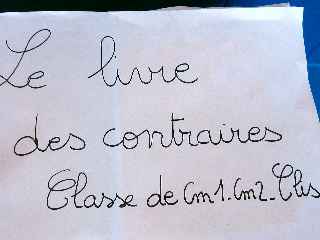 Le livre
des contraires
Classe de Cm1.Cm2_Clis